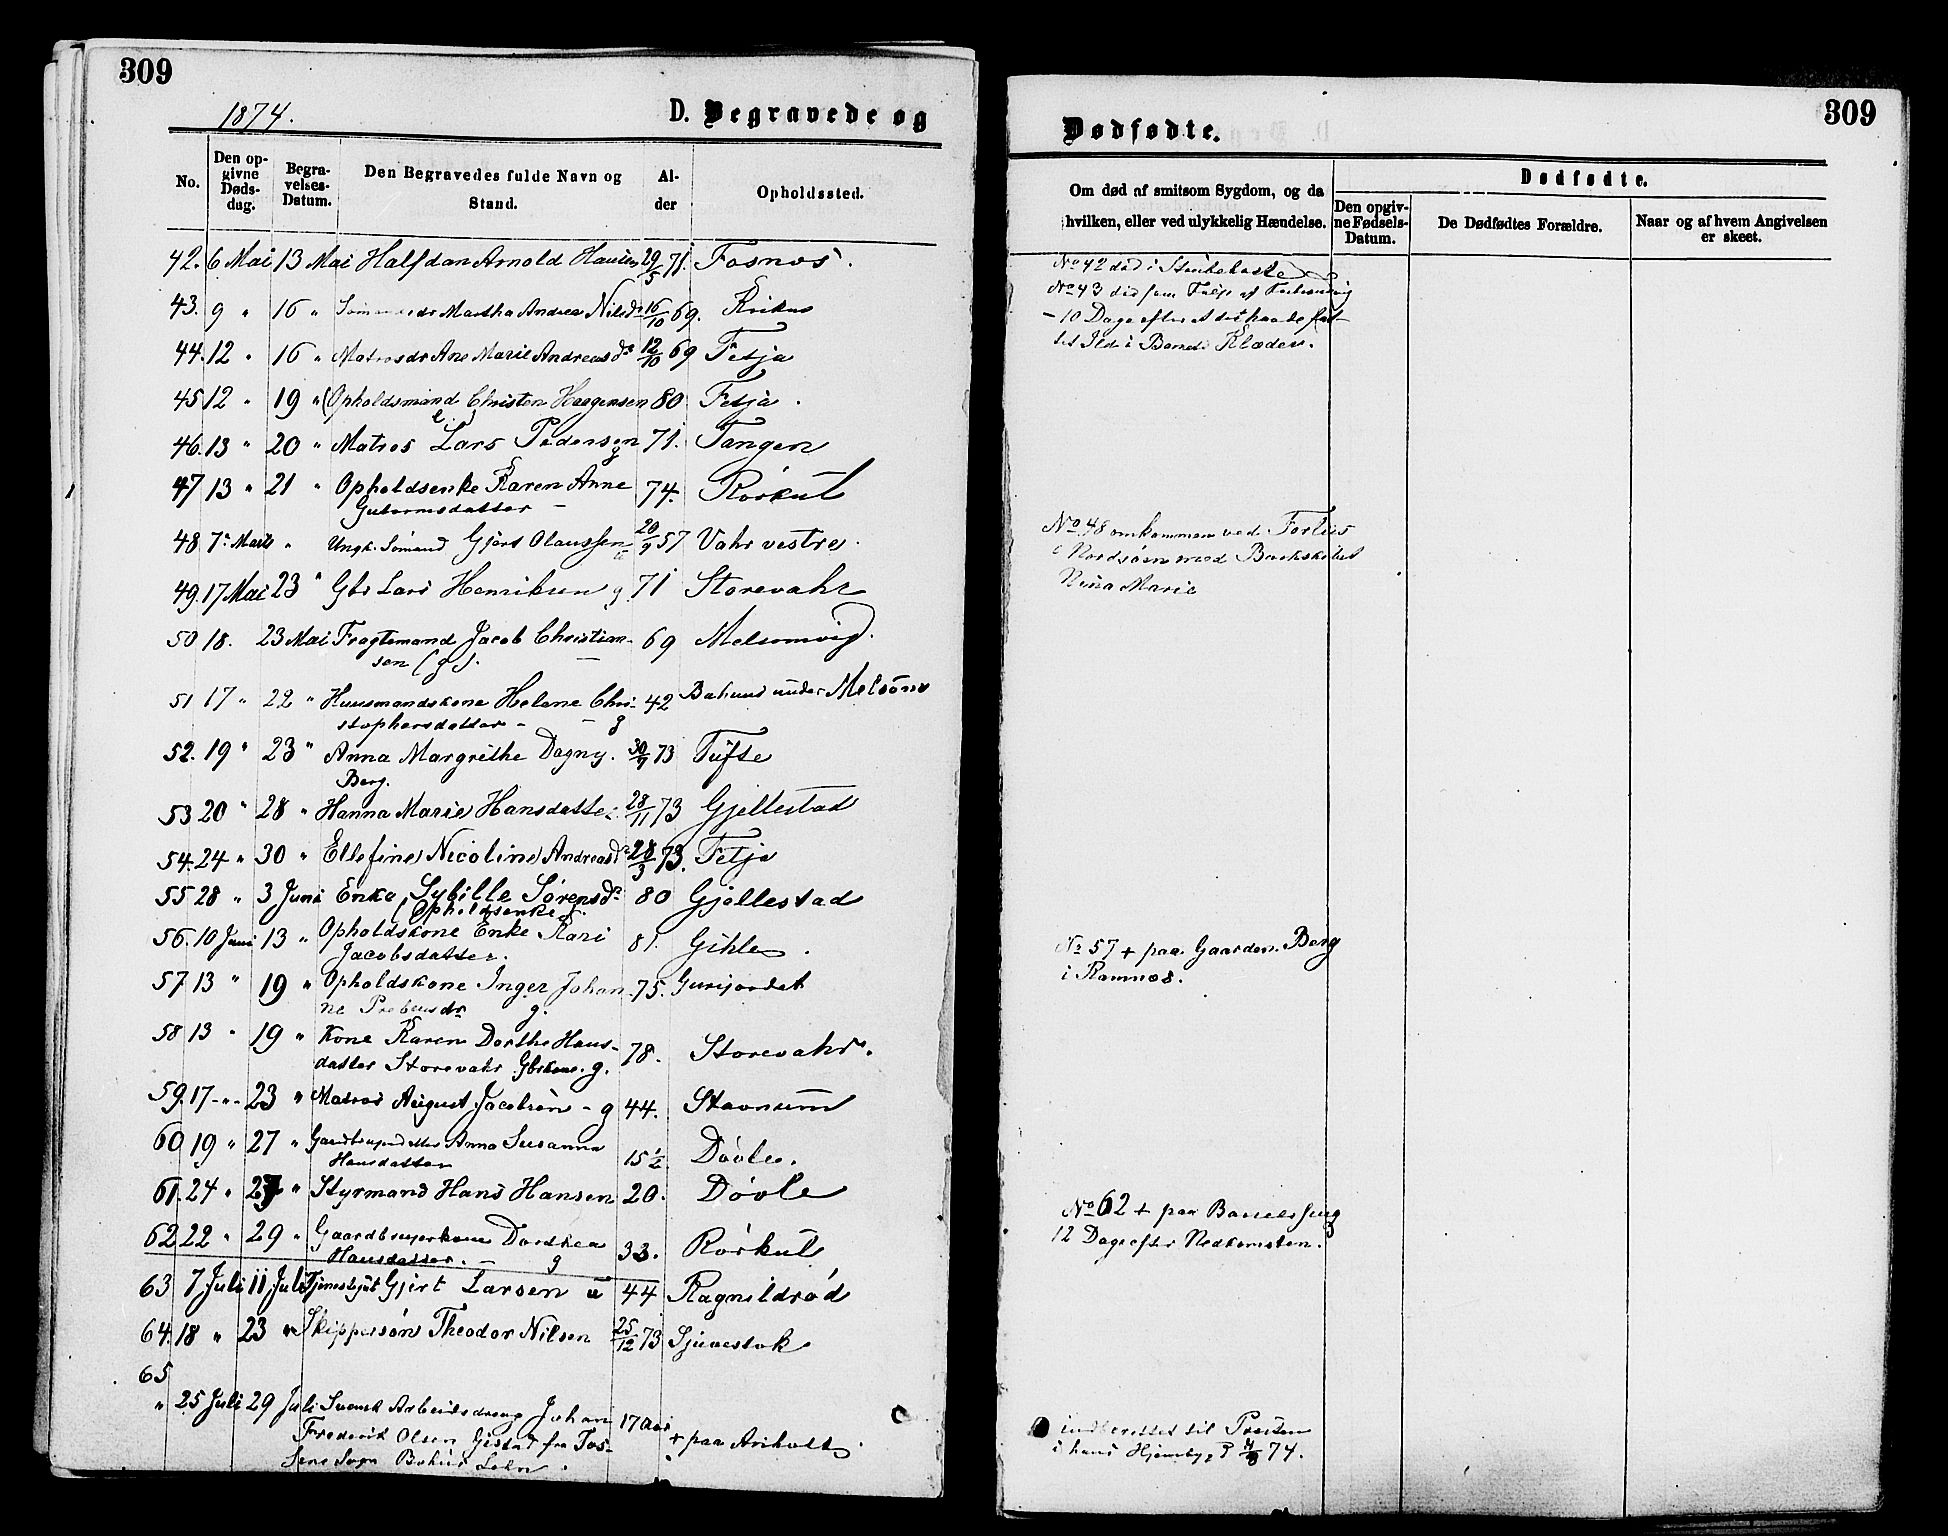 309
1874.
D. Begravede og
No.
Den opgivne Dødsdag.
Begravelses-Datum.
Den Begravedes fulde Navn og Stand.
Alder
Opholdssted.
42. 6 Mai 13 Mai Halfdan Arnold 29/5 71. Fosnes.
43. 9 " 16 " Martha Andrea Nilsdr 16/10 69.
44. 12 " 16 " Matrosdr Ane Marie Andreasdr 12/10 69 Fetja
45 12 " 19 " Opholdsmand Christen Haagensen 80 Fetja.
46. 13 " 20 " Matros Lars Pedersen g 71. Tangen
47 13 " 21 " Opholdsenke Karen Anne 74. Rørkul
Gutormsdatter –
48. 7 Marts " Ungk. Sømand Gjert Olaussen 20/9 57 Vahr vestre.
49. 17 Mai 23 " Gbr Lars Henriksen g. 71 Storevahr
50 18. 23 Mai Fragtemand Jacob Christian- 69 Melsomvig.
sen (g).
51 17 " 22 " Huusmandskone Helene Chri- 42 under Melsom
stophersdatter – – g
52. 19 " 23 " Anna Margrethe Dagny. 30/9 73 Tufte
Berg.
53 20 " 28 " Hanna Marie Hansdatter 28/11 73 Gjellestad
54. 24 " 30 " Ellefine Nicoline Andreasdr 28/3 73. Fetja
55 28 " 3 Juni Enke Sybille Sørensdr 80 Gjellestad
(Opholdsenke)
56. 10 Juni 13 " Opholdskone Enke Kari 81. Gihle.
Jacobsdatter.
57 13 " 19 " Opholdskone Inger Johan- 75. Gurijordet
ne Prebensdr g.
58 13 " 19 " Kone Karen Dorthe Hans- 78. Storevahr.
datter Storevahr Gbrkone. g.
59. 17 " 23 " Matros August Jacobsen – g 44. Stavnum
60 19 " 27 " Anna Susanna 15½ Døvle.
Hansdatter
61. 24 " 27 " Styrmand Hans Hansen 20. Døvle
62 22 " 29 " Gaardbrugerkone Dorthea 33. Rørkul
Hansdatter. – g
63 7 Juli 11 Juli Gjert Larsen u 44 Ragnildrød
64. 18 " 23 " Skippersøn Theodor Nilsen 25/12 73 Sjuestok
65
" 25 Juli 29 Juli Svensk Arbeidsdreng Johan 17 Aar
Frederik Olsen fra Tos- + paa Ariholt.
sene Sogn Bohus Lehn.
309
Dødfødte.
Om død af smitsom Sygdom, og da hvilken, eller ved ulykkelig Hændelse.
Dødfødte.
Den opgivne Fødsels-Datum.
De Dødfødtes Forældre.
Naar og af hvem Angivelsen er skeet.
No 42 død i Strubehoste
No 43 død som Følge af Forbrænding
– 10 Dage efter at det havde fat-
tet Ild i Barnets Klæder.
No 48 omkommen ved Forlis
i Nordsøen med Barkskibet
Nina Marie
No 57 + paa Gaarden Berg
i Ramnes.
No 62 + paa Barselseng
12 Dage efter Nedkomsten.
indberettet til Præsten
i hans Hjembygd 4/8 74.